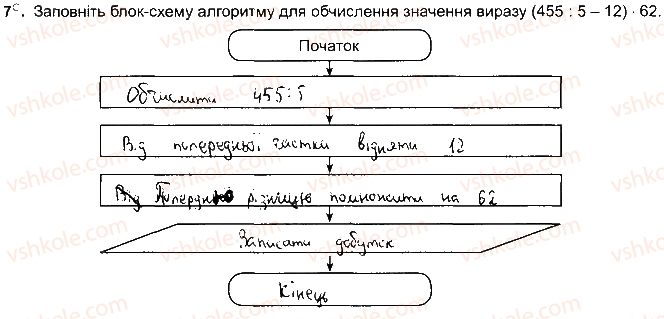 7ᶜ. Заповніть блок-схему алгоритму для обчислення значення виразу (455 : 5 – 12) · 62.
Початок
Обчислити 455:5
Від попередньої частки відняти 12
Від Попередню різницю помножити на 62
Записати добуток
Кінець
vshkole.com vshkole.com vshkole.com vshkole.com